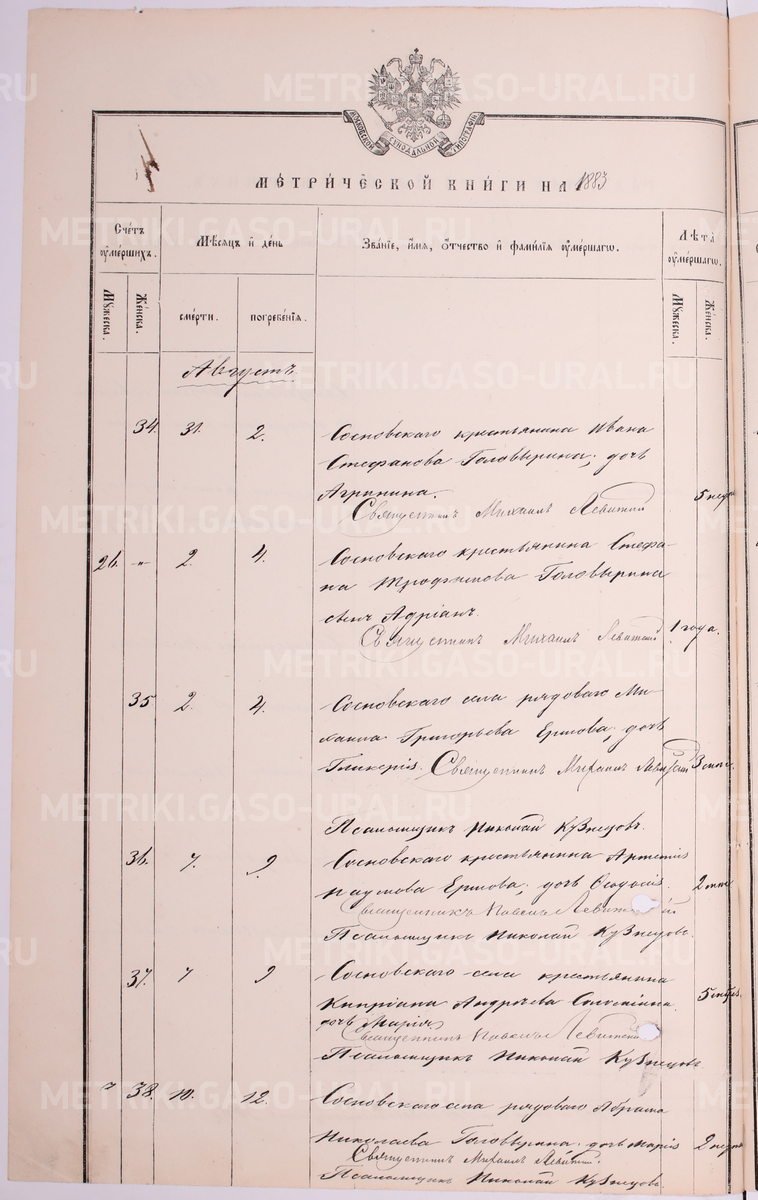 МОСКОВСКОЙ СѴНОДАЛЬНОЙ ТИПОГРАФІИ
МЕТРИЧЕСКОЙ КНИГИ НА 1883
Счетъ оумершихъ.
Мѣсяцъ и день
Званіе, имя, отчество и фамилія оумершагѡ.
Лѣта оумершагѡ.
Мꙋжеска.
Женска.
смерти.
погребенія.
Мꙋжеска.
Женска.
Августъ
34. 31. 2. Сосновскаго крестьянина Ивана
Стефанова Головырина, дочь
Агрипина. 5 неде
Священникъ Михаилъ Левитскій
26. -"- 2. 4. Сосновскаго крестьянина Стефа-
на Трофимова Головырина
сынъ Адріанъ. 1 года.
Священникъ Михаилъ Левитскій
35 2. 4. Сосновскаго села рядоваго Ми-
хаила Григорьева Ершова, дочь
Гликерія. Священникъ Михаилъ Левитскій 3
Псаломщикъ Николай Кузнецовъ.
36. 7. 9. Сосновскаго крестьянина Артемія
Наумова Ершова, дочь Ѳеодосія. 2
Священникъ Левитскій
Псаломщикъ Николай Кузнецовъ
37. 7 9 Сосновскаго села крестьянина
Кипріана Андреева 5
дочь Марія
Священникъ Левитскій
Псаломщикъ Николай Кузнецовъ
38. 10. 12. Сосновскаго села рядоваго Абрама
Николаева Головырина, дочь Марія 2 неде
Священникъ Михаилъ Левитскій.
Псаломщикъ Николай Кузнецовъ
METRIKI.GASO-URAL.RU